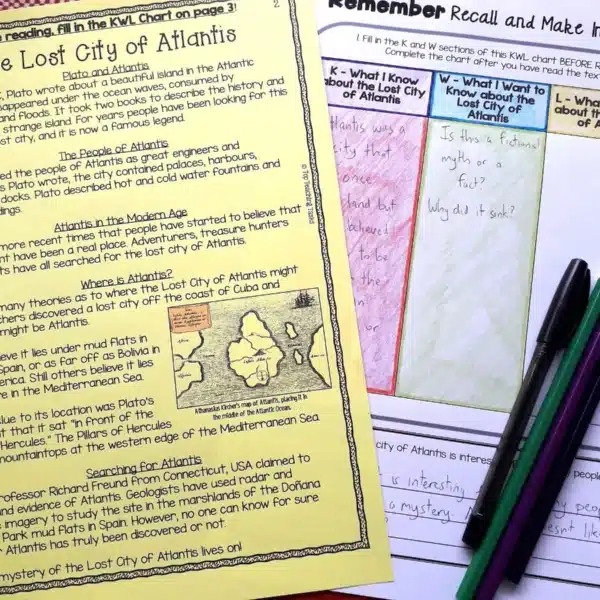 reading, fill in the KWL Chart on page 3!
2
Lost City of Atlantis
Plato and Atlantis
Plato wrote about a beautiful island in the Atlantic
appeared under the ocean waves, consumed by
and floods. It took two books to describe the history and
strange island. For years people have been looking for this
st city, and it is now a famous legend.
The People of Atlantis
ed the people of Atlantis as great engineers and
s Plato wrote, the city contained palaces, harbours,
docks. Plato described hot and cold water fountains and
dings.
Atlantis in the Modern Age
more recent times that people have started to believe that
ht have been a real place. Adventurers, treasure hunters
ts have all searched for the lost city of Atlantis.
Where is Atlantis?
many theories as to where the Lost City of Atlantis might
chers discovered a lost city off the coast of Cuba and
might be Atlantis.
eve it lies under mud flats in
Spain, or as far off as Bolivia in
erica. Still others believe it lies
re in the Mediterranean Sea.
clue to its location was Plato's
t that it sat "in front of the
Hercules." The Pillars of Hercules
mountaintops at the western edge of the Mediterranean Sea.
Athanasius Kircher's map of Atlantis, placing it in
the middle of the Atlantic Ocean.
Searching for Atlantis
rofessor Richard Freund from Connecticut, USA claimed to
nd evidence of Atlantis. Geologists have used radar and
imagery to study the site in the marshlands of the Doñana
Park mud flats in Spain. However, no one can know for sure
Atlantis has truly been discovered or not.
mystery of the Lost City of Atlantis lives on!
© Top Teaching Tasks
Remember Recall and Make
1. Fill in the K and W sections of this KWL chart BEFORE
Complete the chart after you have read the tex
K - What I Know
about the Lost City
of Atlantis
W - What I Want to
Know about the
Lost City of
Atlantis
L - Wha
about th
of A
tlantis was a
city that
once
island but
believed
to be
the
Is this a fictional
myth or a
fact?
Why did it sink?
city of Atlantis is interes
people
is interesting
a mystery.
peop
esn't like